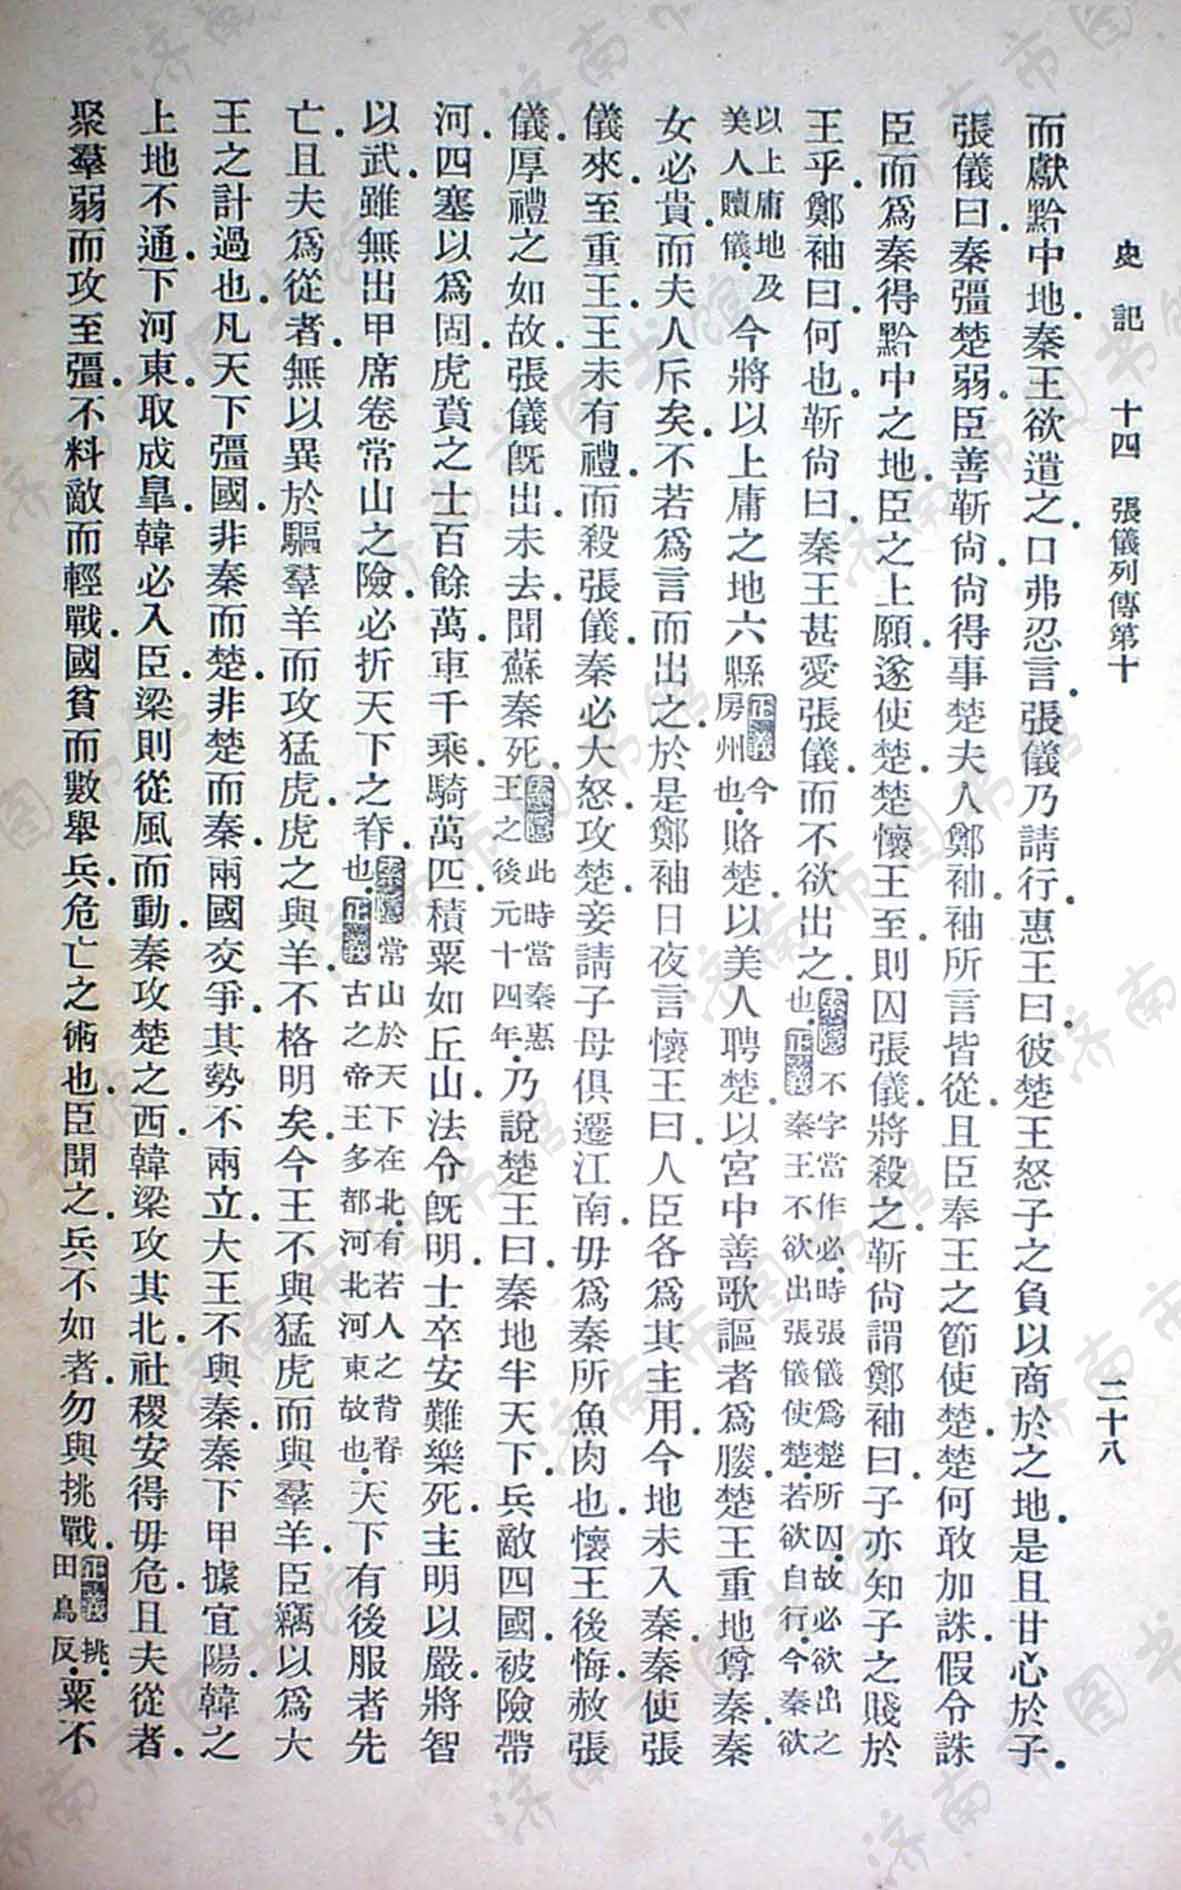 史記 十四 張儀列傳第十 二十八
而獻黔中地.秦王欲遣之.口弗忍言.張儀乃請行.惠王曰.彼楚王怒子之負以商於之地.是且甘心於子.
張儀曰.秦彊楚弱.臣善靳尙.尙得事楚夫人鄭袖.袖所言皆從.且臣奉王之節使楚.楚何敢加誅.假令誅
臣而爲秦得黔中之地.臣之上願.遂使楚.楚懷王至.則囚張儀.將殺之.靳尙謂鄭袖曰.子亦知子之賤於
王乎.鄭袖曰.何也.靳尙曰.秦王甚愛張儀.而不欲出之.索隱不字當作必.時張儀爲楚所囚.故必欲出之也.正義秦王不欲出張儀使楚.若欲自行.今秦欲
以上庸地及美人贖儀.今將以上庸之地六縣正義今房州也.賂楚.以美人聘楚.以宮中善歌謳者爲媵.楚王重地尊秦.秦
女必貴.而夫人斥矣.不若爲言而出之.於是鄭袖日夜言懷王曰.人臣各爲其主用.今地未入秦.秦使張
儀來.至重王.王未有禮.而殺張儀.秦必大怒攻楚.妾請子母俱遷江南.毋爲秦所魚肉也.懷王後悔.赦張
儀.厚禮之如故.張儀旣出.未去.聞蘇秦死.索隱此時當秦惠王之後元十四年.乃說楚王曰.秦地半天下.兵敵四國.被險帶
河.四塞以爲固.虎賁之士百餘萬.車千乘.騎萬匹.積粟如丘山.法令旣明.士卒安難樂死.主明以嚴.將智
以武.雖無出甲.席卷常山之險.必折天下之脊.索隱常山於天下在北.有若人之背脊也.正義古之帝王多都河北河東故也.天下有後服者先
亡.且夫爲從者.無以異於驅羣羊而攻猛虎.虎之與羊.不格明矣.今王不與猛虎而與羣羊.臣竊以爲大
王之計過也.凡天下彊國.非秦而楚.非楚而秦.兩國交爭.其勢不兩立.大王不與秦.秦下甲據宜陽.韓之
上地不通.下河東.取成皐.韓必入臣.梁則從風而動.秦攻楚之西.韓梁攻其北.社稷安得毋危.且夫從者.
聚羣弱而攻至彊.不料敵而輕戰.國貧而數舉兵.危亡之術也.臣聞之.兵不如者.勿與挑戰.正義挑.田鳥反.粟不